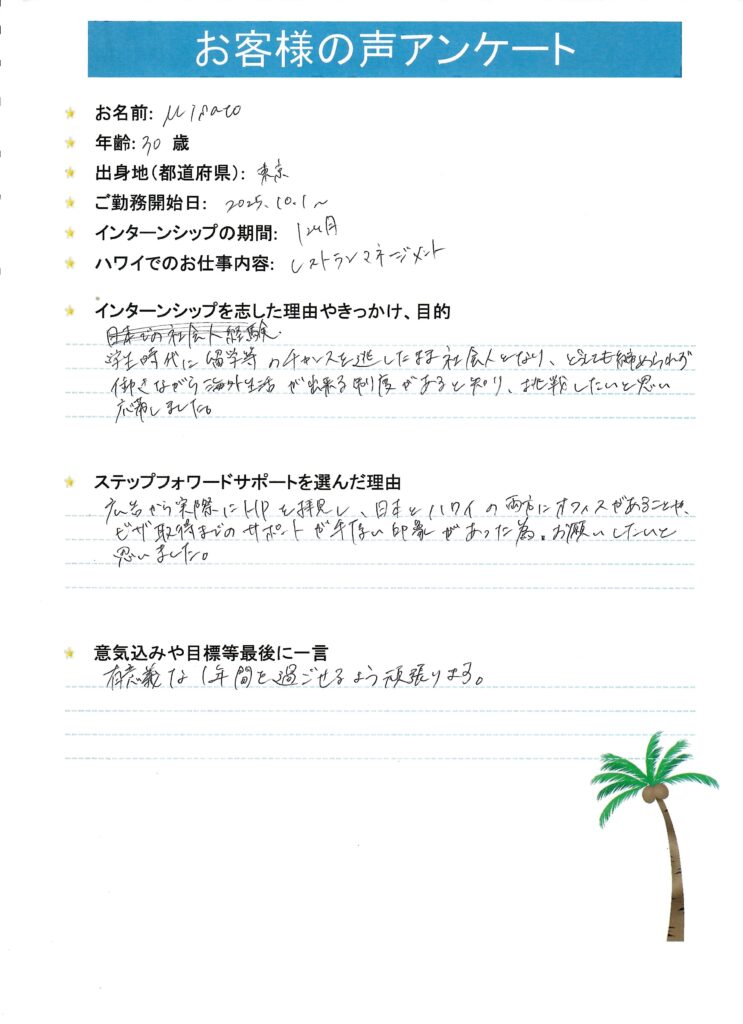 お客様の声アンケート
お名前: Misato
年齢: 30 歳
出身地(都道府県): 東京
ご勤務開始日: 2025.10.1〜
インターンシップの期間: 12ヶ月
ハワイでのお仕事内容: レストランマネージメント
インターンシップを志した理由やきっかけ、目的
日本での社会人経験.
学生時代に留学等のチャンスを逃したまま社会人となり、どうしても諦められず
働きながら海外生活が出来る制度があると知り、挑戦したいと思い
応募しました。
ステップフォワードサポートを選んだ理由
広告から実際にHPを拝見し、日本とハワイの両方にオフィスがあることや、
ビザ取得までのサポートが手厚い印象があった為、お願いしたいと
思いました。
意気込みや目標等最後に一言
有意義な1年間を過ごせるよう頑張ります。